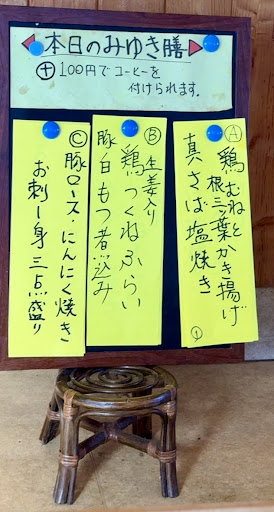 本日のみゆき膳
+100円でコーヒーを
付けられます。
Ⓐ
鶏むねと
根三ツ葉かき揚げ
真さば塩焼き
①
Ⓑ
生姜入り
鶏つくねふらい
豚白もつ煮込み
Ⓒ豚ロース・にんにく焼き
お刺し身三点盛り